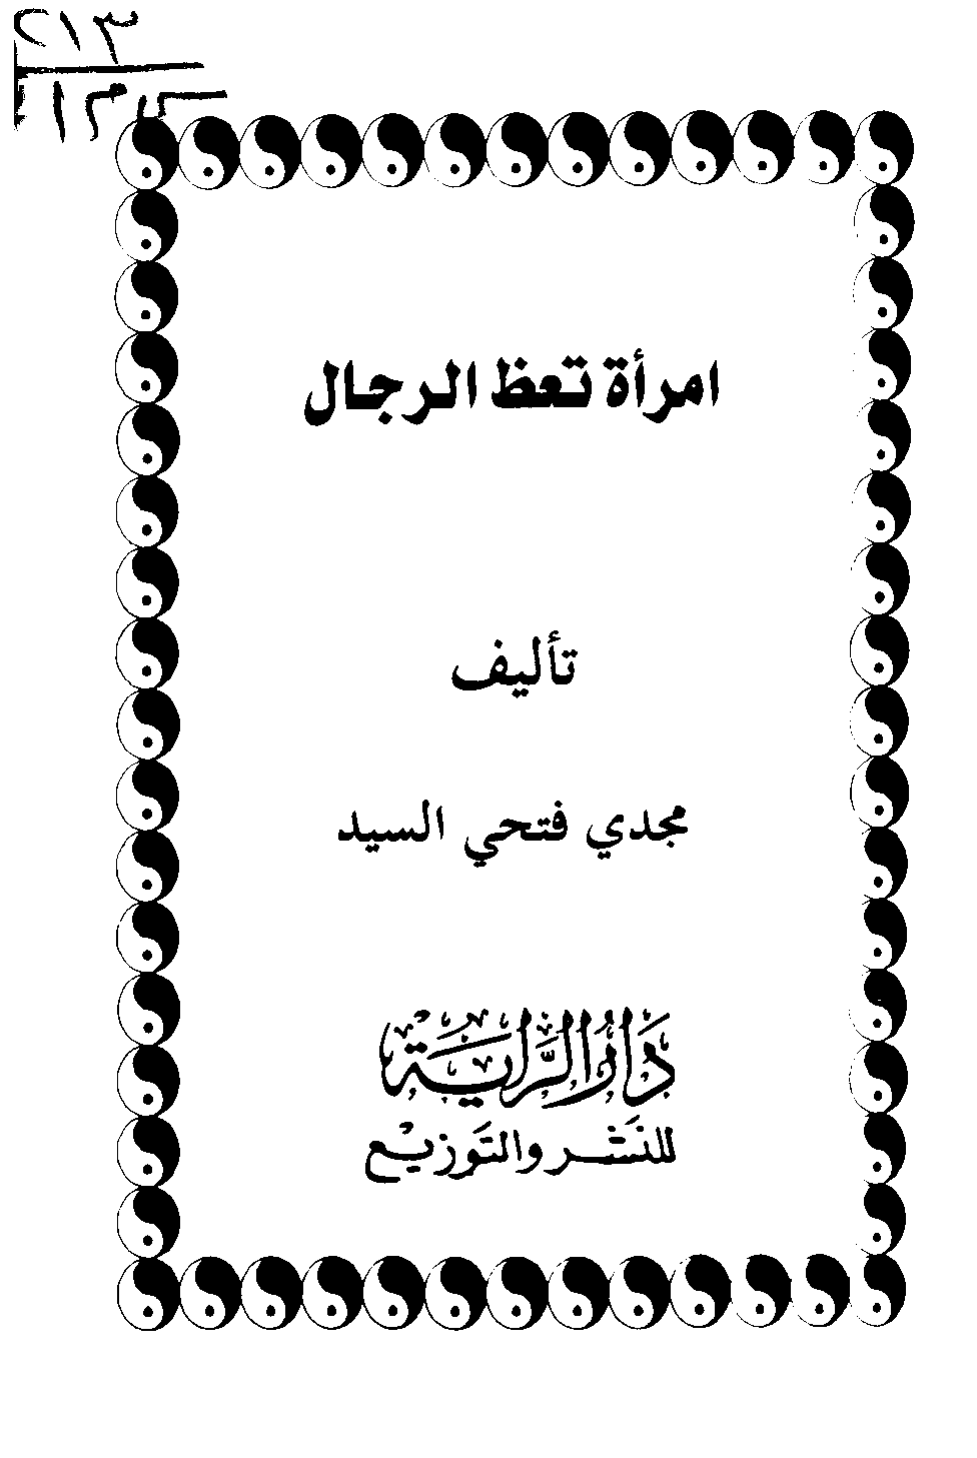 ٢١٣
امرأة تعظ الرجال
تأليف
مجدي فتحي السيد
دار الراية
للنشر والتوزيع